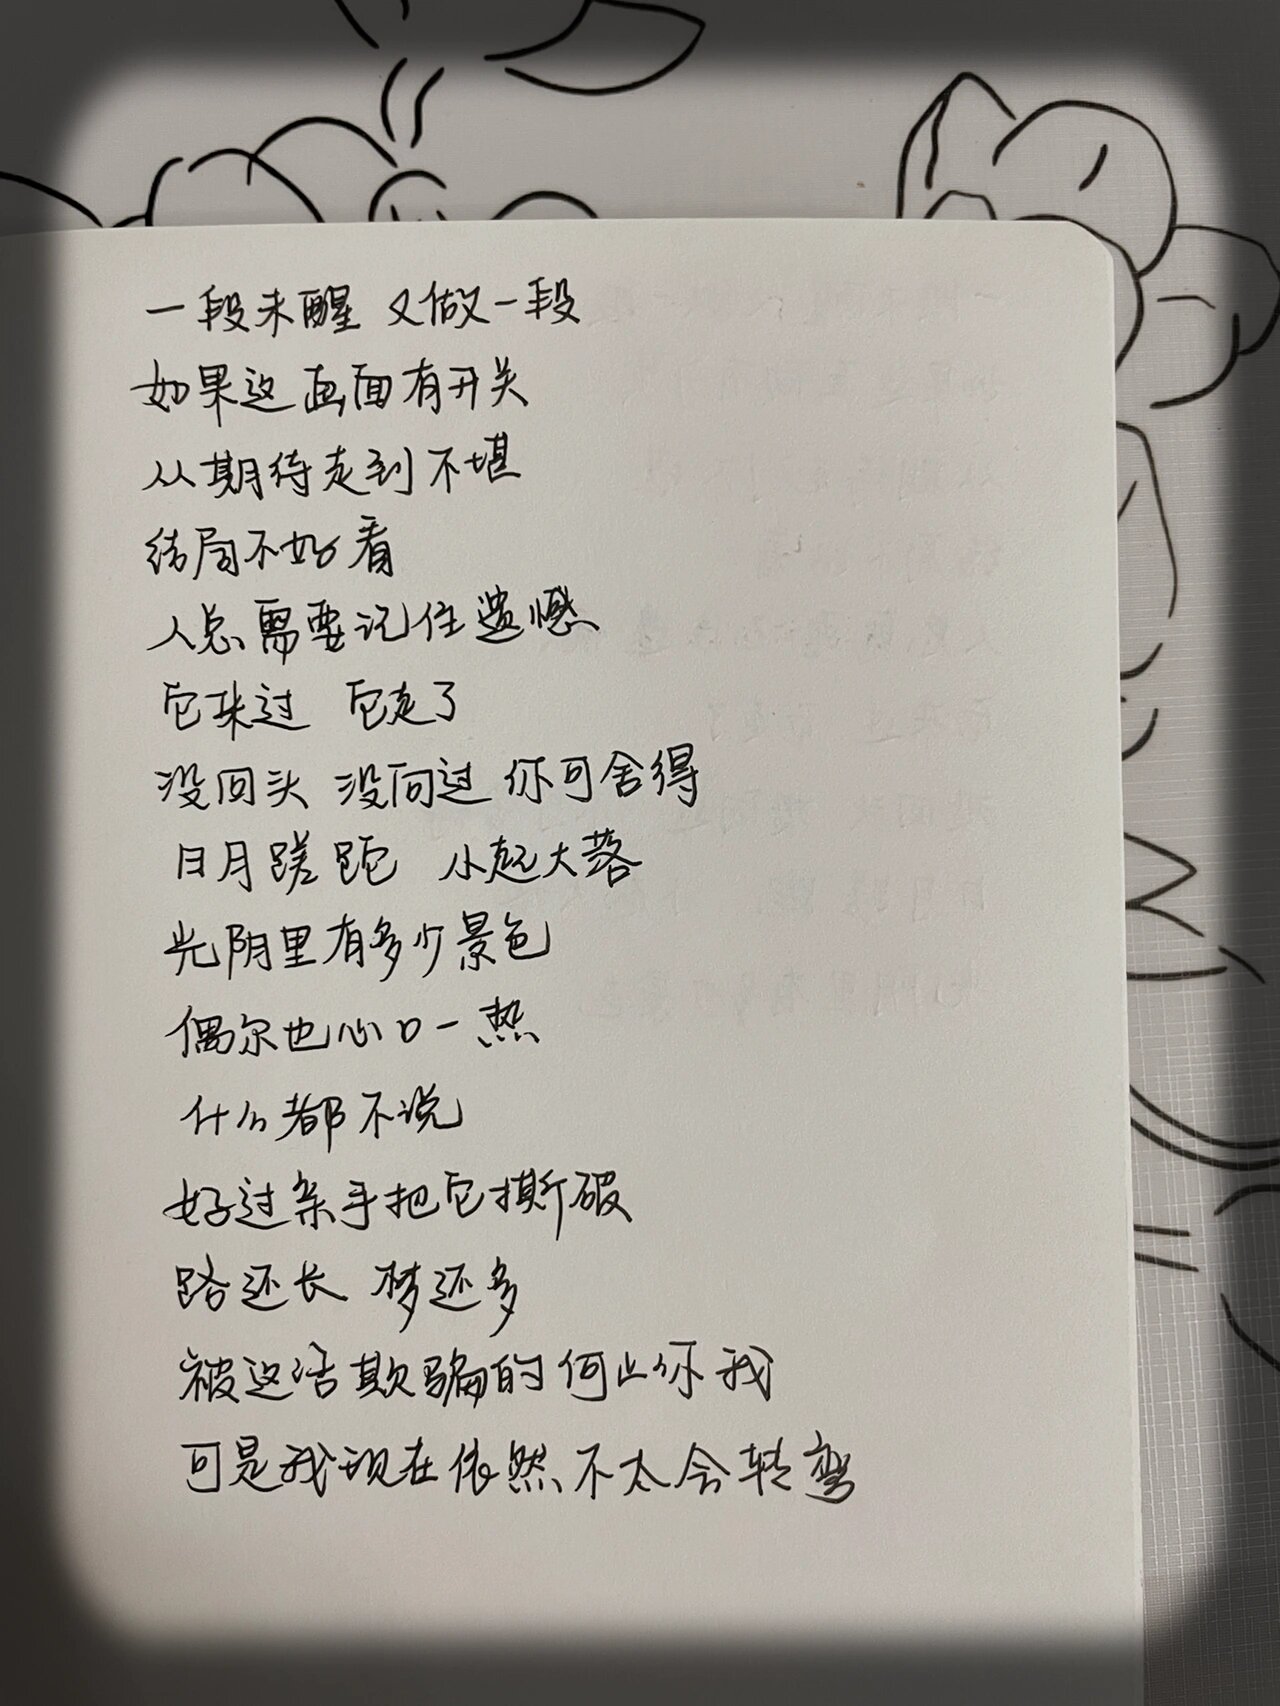 一段未醒 又做一段
如果这画面有开关
从期待走到不堪
结局不好看
人总需要记住遗憾
它来过 它走了
没回头 没问过 你可舍得
日月蹉跎 小起大落
光阴里有多少景色
偶尔也心口一热
什么都不说
好过亲手把它撕破
路还长 梦还多
被生活欺骗的何止你我
可是我现在依然不太会转弯